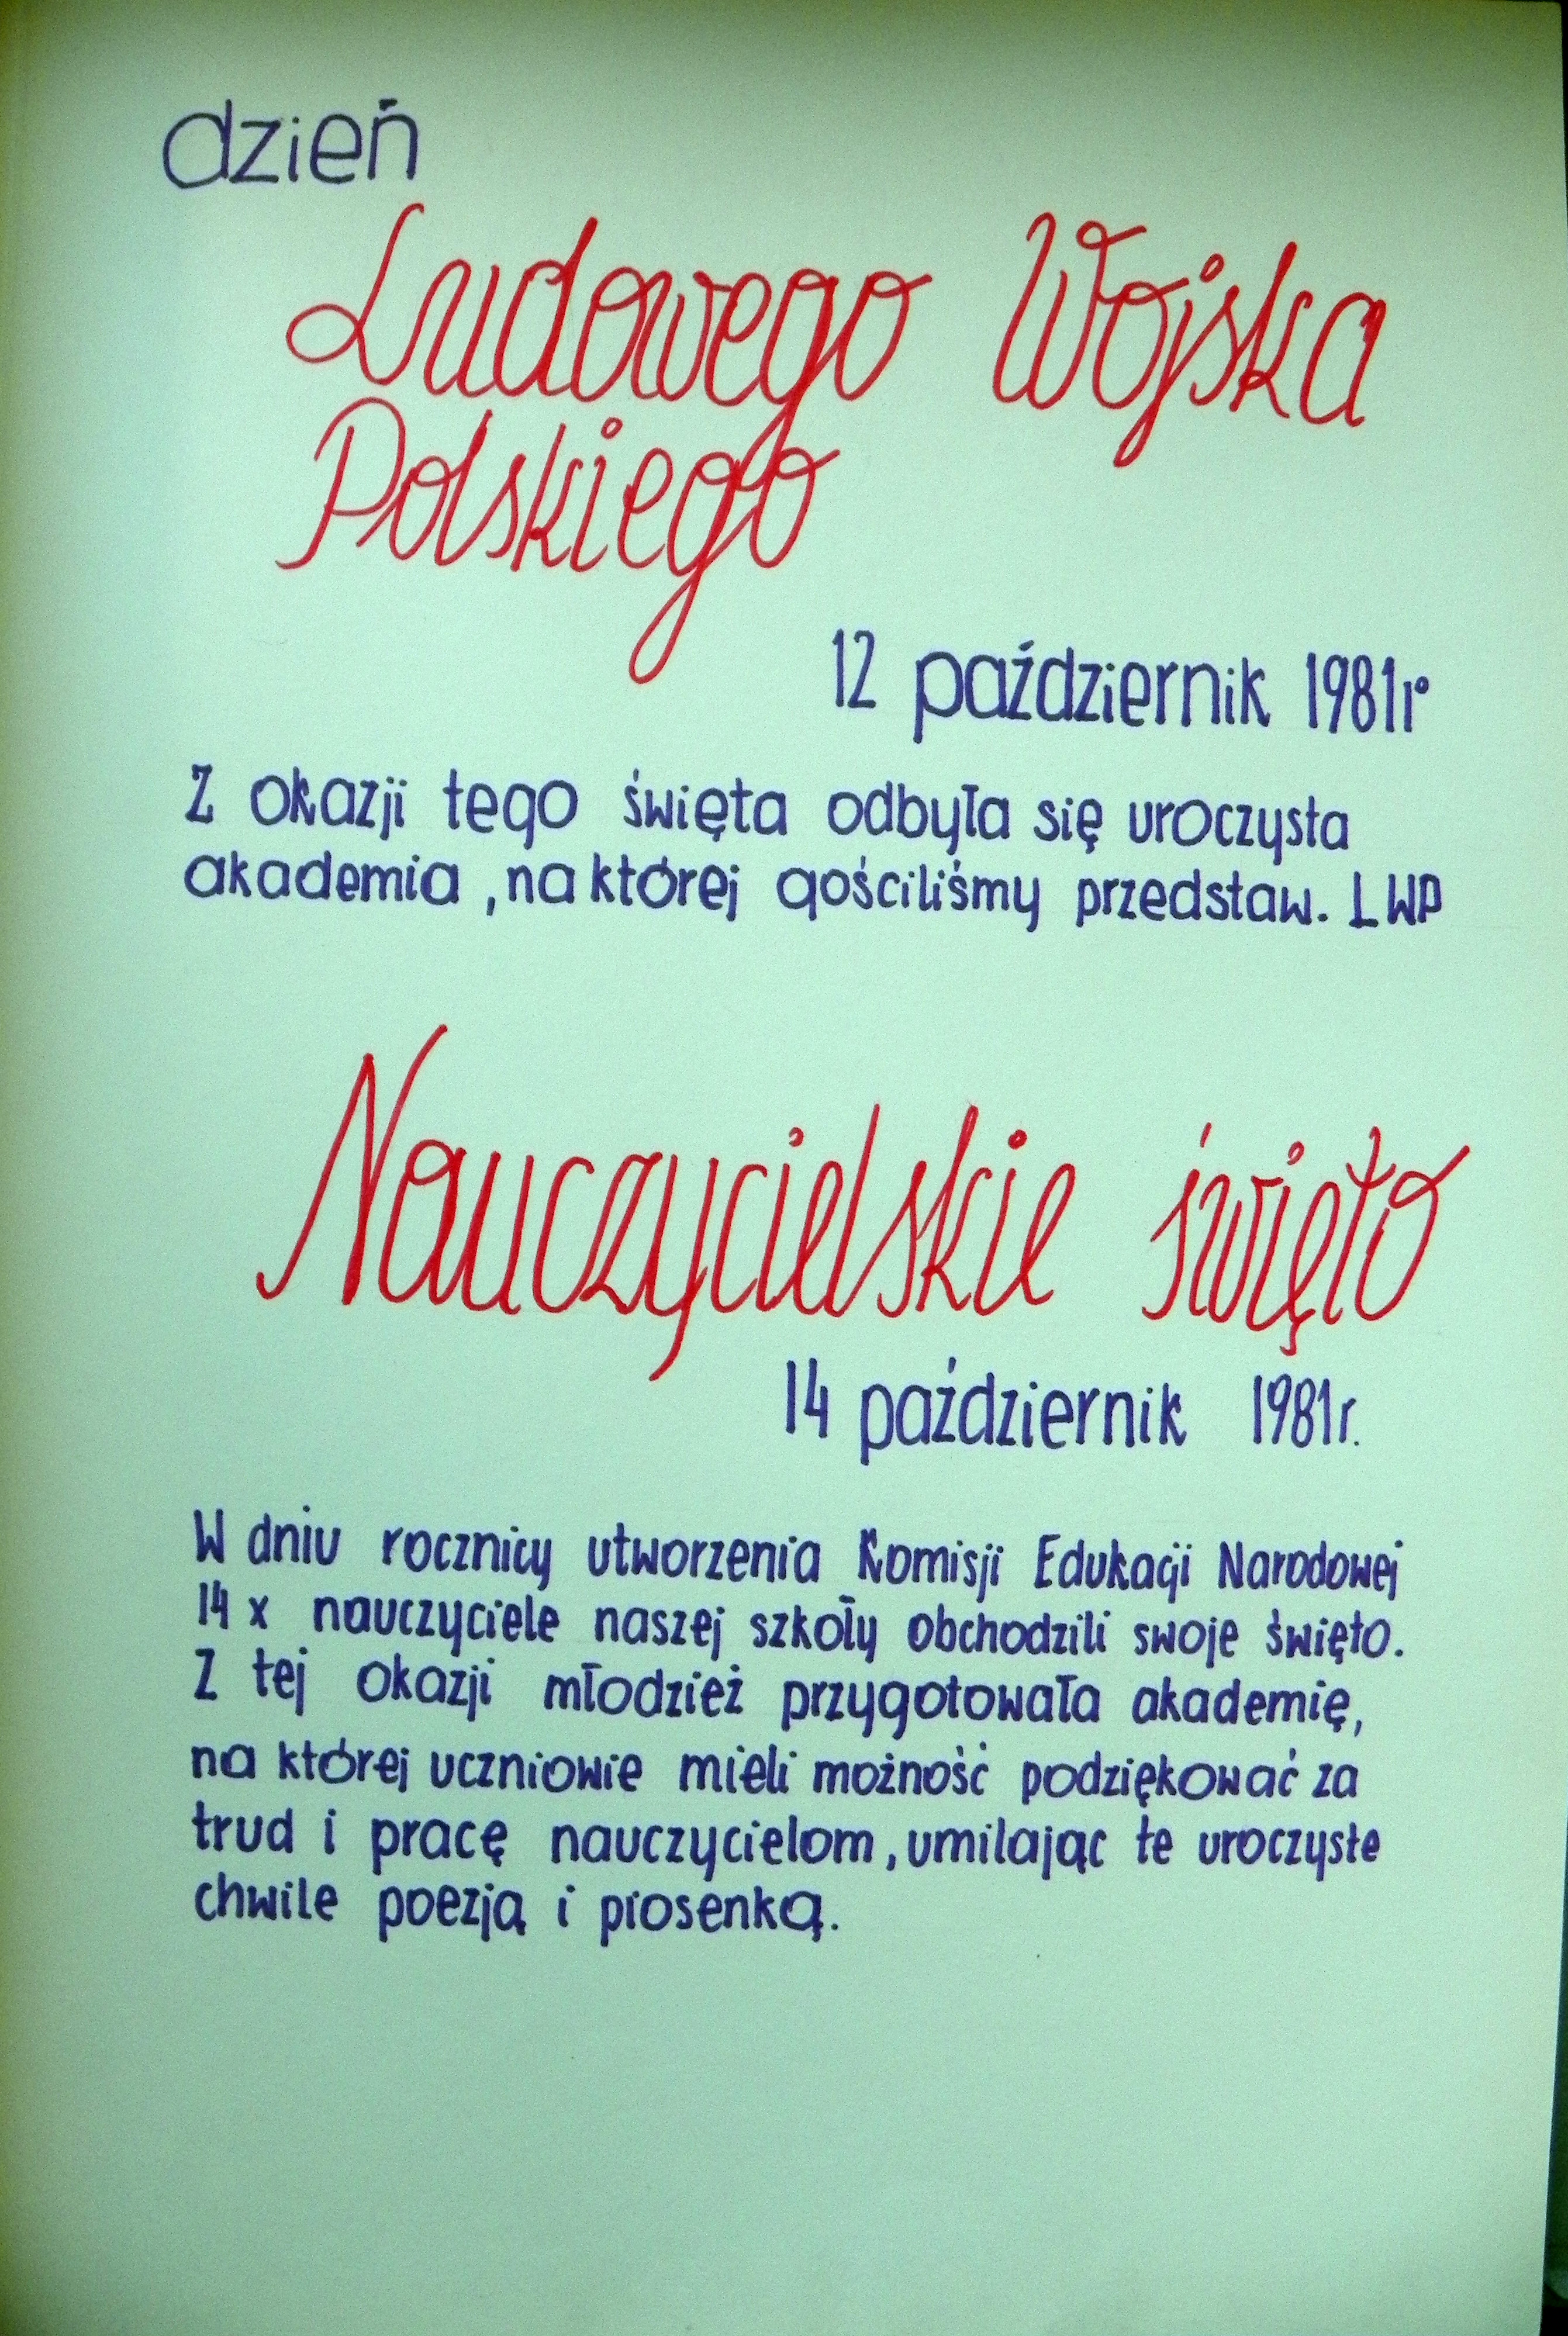 dzień
Ludowego Wojska
Polskiego
12 październik 1981r
Z okazji tego święta odbyła się uroczysta
akademia, na której gościliśmy przedstaw. LWP
Nauczycielskie święto
14 październik 1981r.
W dniu rocznicy utworzenia Komisji Edukacji Narodowej
14 x nauczyciele naszej szkoły obchodzili swoje święto.
Z tej okazji młodzież przygotowała akademię,
na której uczniowie mieli możność podziękować za
trud i pracę nauczycielom, umilając te uroczyste
chwile poezją i piosenką.